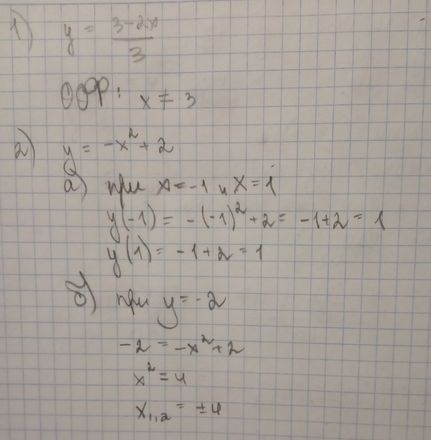 1) y = (3-2x)/3
ООФ: x ≠ 3
2) y = -x² + 2
а) при x = -1 и x = 1
y(-1) = -(-1)² + 2 = -1+2 = 1
y(1) = -1+2 = 1
б) при y = -2
-2 = -x² + 2
x² = 4
x₁,₂ = ±4